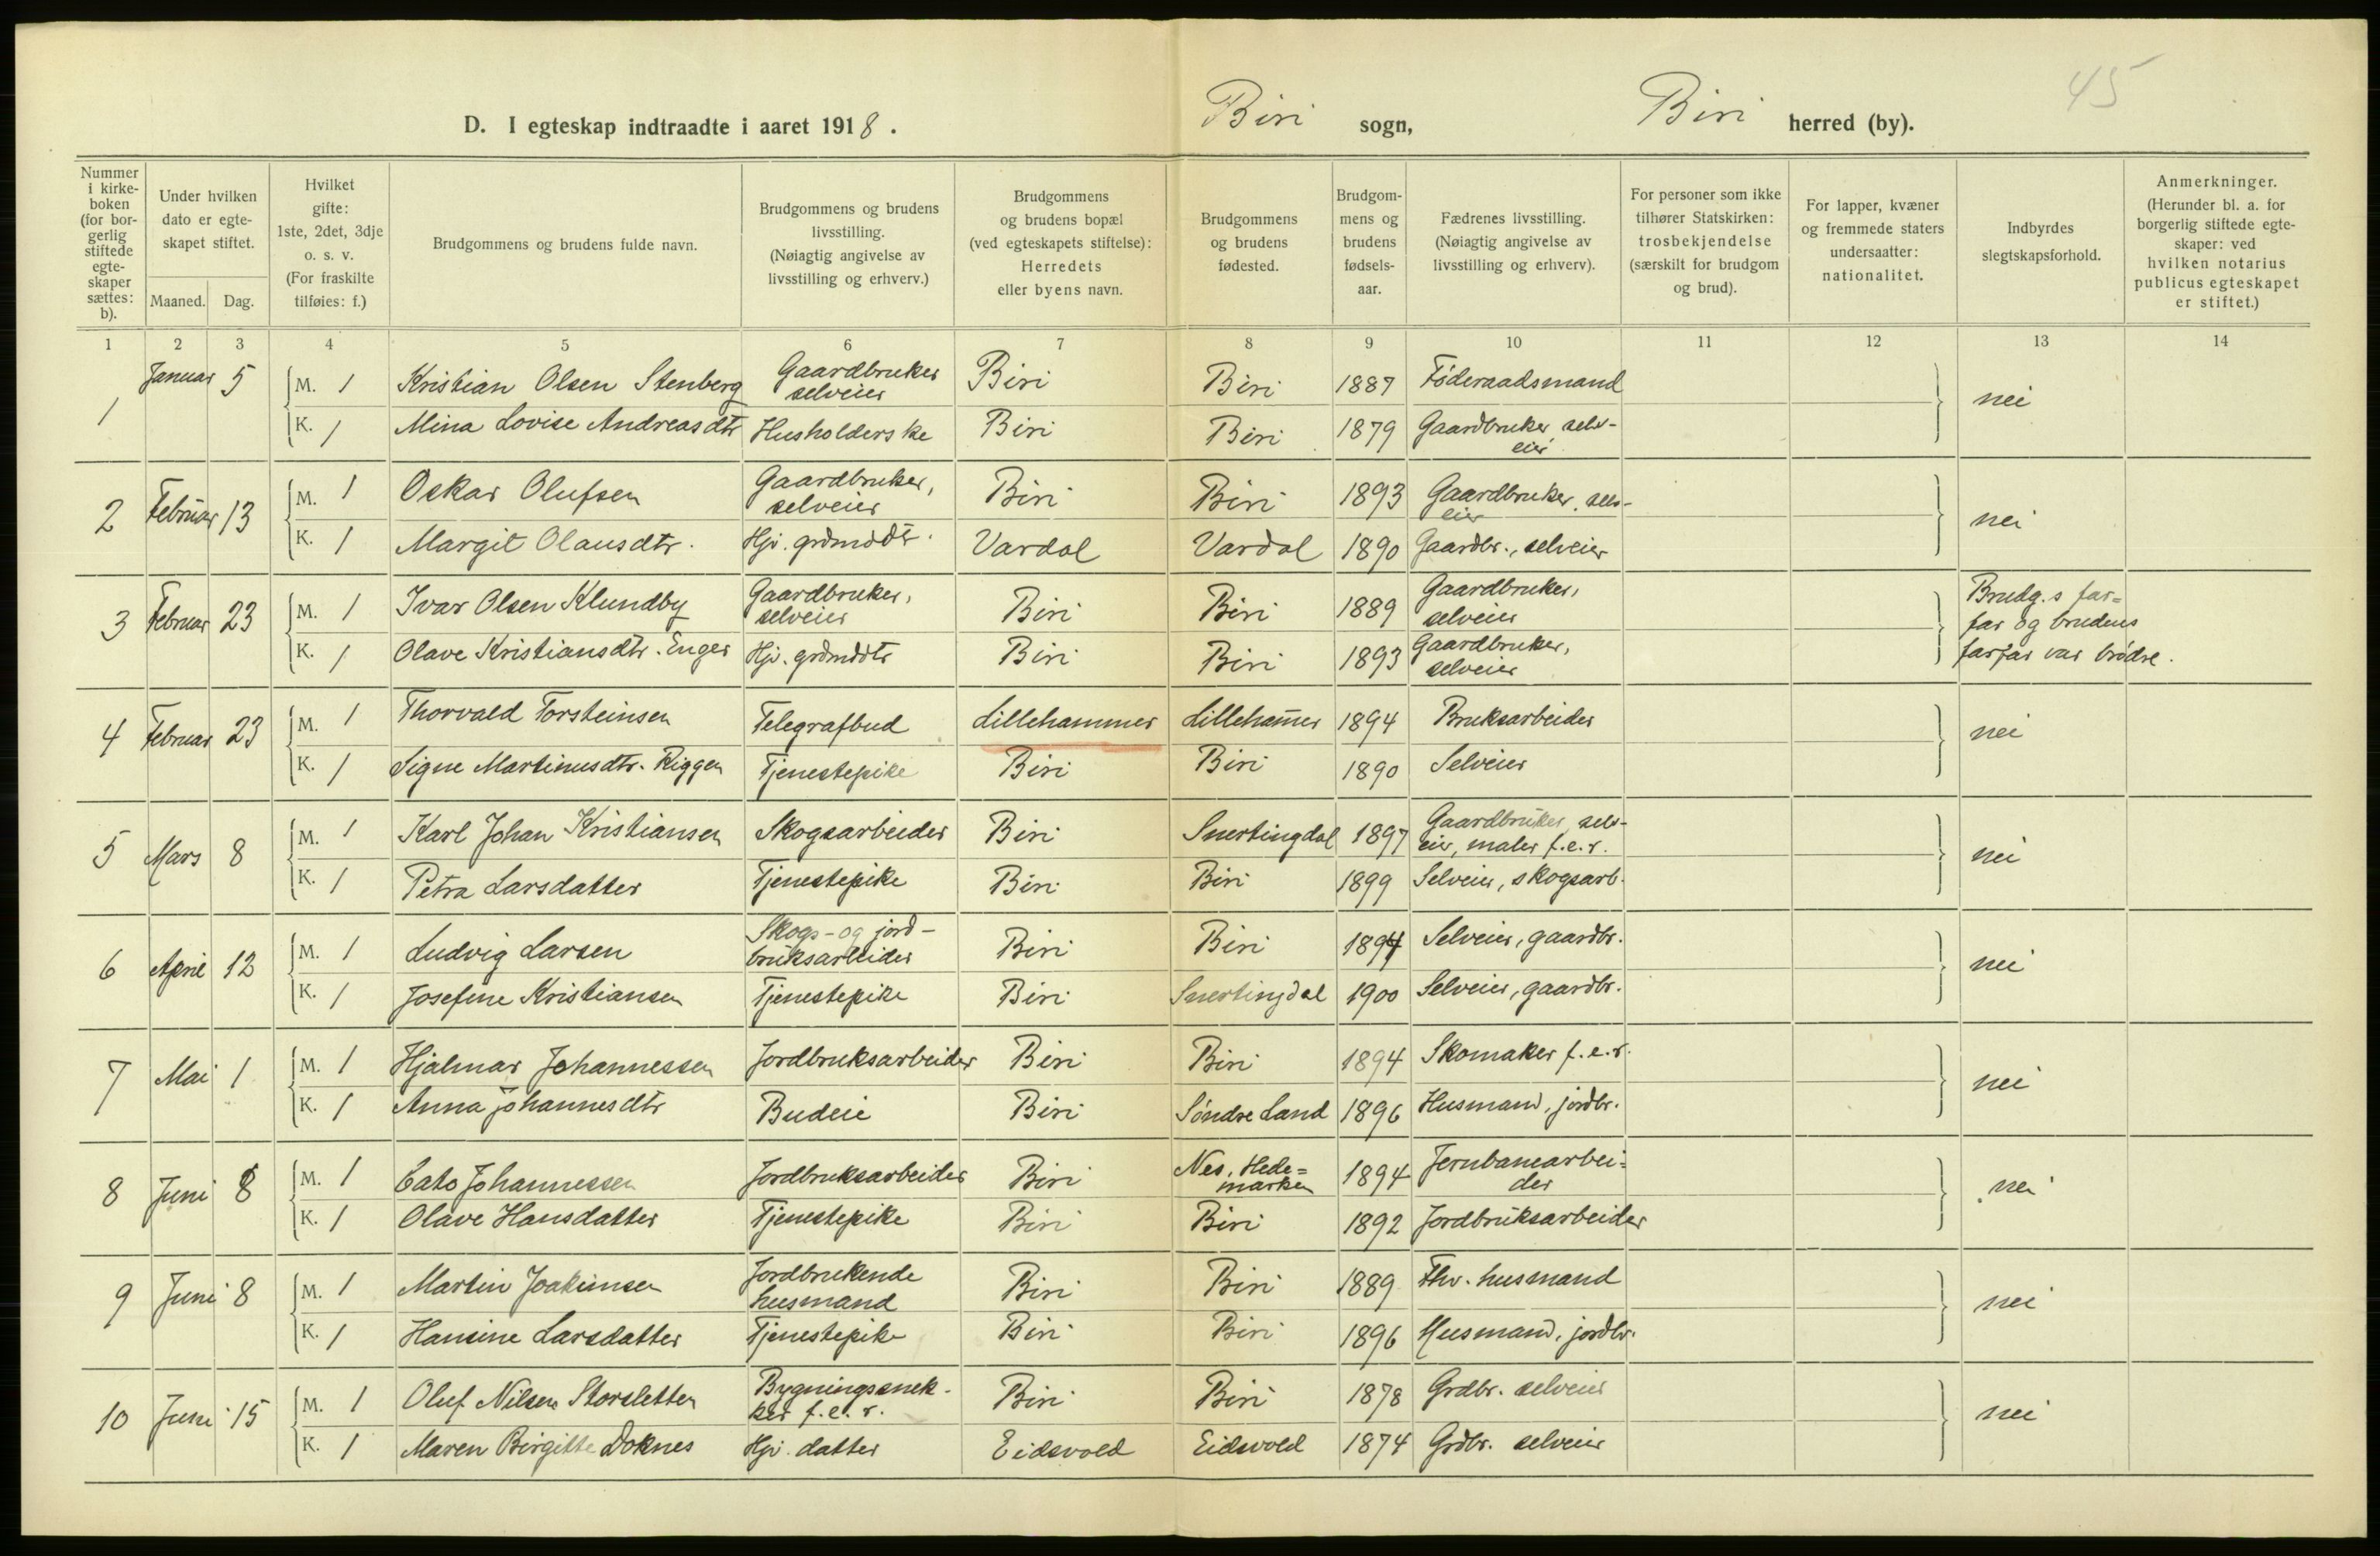 45
D. I egteskap indtraadte i aaret 1918. Biri sogn, Biri herred (by).
Nummer i kirke-boken (for bor-gerlig stiftede egte-skaper sættes: b).
Under hvilken dato er egte-skapet stiftet.
Maaned. Dag.
Hvilket gifte: 1ste, 2det, 3dje o. s. v. (For fraskilte tilføies: f.)
Brudgommens og brudens fulde navn.
Brudgommens og brudens livsstilling. (Nøiagtig angivelse av livsstilling og erhverv.)
Brudgommens og brudens bopæl (ved egteskapets stiftelse): Herredets eller byens navn.
Brudgommens og brudens fødested.
Brudgom-mens og brudens fødsels-aar.
Fædrenes livsstilling. (Nøiagtig angivelse av livsstilling og erhverv).
For personer som ikke tilhører Statskirken: trosbekjendelse (særskilt for brudgom og brud).
For lapper, kvæner og fremmede staters undersaatter: nationalitet.
Indbyrdes slegtskapsforhold.
Anmerkninger. (Herunder bl. a. for borgerlig stiftede egte-skaper: ved hvilken notarius publicus egteskapet er stiftet.)
1 2 3 4 5 6 7 8 9 10 11 12 13 14
1 Januar 5 M. 1 Kristian Olsen Stenberg Gaardbruker selveier Biri Biri 1887 Føderaadsmand nei
K. 1 Mina Lovise Andreasdtr Husholderske Biri Biri 1879 Gaardbruker selv-eier
2 Februar 13 M. 1 Oskar Olufsen Gaardbruker, selveier Biri Biri 1893 Gaardbruker, selv-eier nei
K. 1 Margit Olausdtr. Hjv. grdmddtr. Vardal Vardal 1890 Gaardbr., selveier
3 Februar 23 M. 1 Ivar Olsen Klundby Gaardbruker, selveier Biri Biri 1889 Gaardbruker, selveier Brudg.s far=far og brudens farfar var brødre.
K. 1 Olave Kristiansdtr. Enger Hjv. grdmddtr Biri Biri 1893 Gaardbruker, selveier
4 Februar 23 M. 1 Thorvald Torsteinsen Telegrafbud Lillehammer Lilleham̄er 1894 Bruksarbeider nei
K. 1 Signe Martinusdtr. Riggen Tjenestepike Biri Biri 1890 Selveier
5 Mars 8 M. 1 Karl Johan Kristiansen Skogsarbeider Biri Snertingdal 1897 Gaardbruker, selv-eier, maler f.e.r. nei
K. 1 Petra Larsdatter Tjenestepike Biri Biri 1899 Selveier, skogsarb.
6 April 12 M. 1 Ludvig Larsen Skogs- og jord-bruksarbeider Biri Biri 1894 Selveier, gaardbr. nei
K. 1 Josefine Kristiansen Tjenestepike Biri Snertingdal 1900 Selveier, gaardbr.
7 Mai 1 M. 1 Hjalmar Johannessen Jordbruksarbeider Biri Biri 1894 Skomaker f.e.r. nei
K. 1 Anna Johannesdtr Budeie Biri Søndre Land 1896 Husmand, jordbr.
8 Juni 8 M. 1 Cato Johannessen Jordbruksarbeider Biri Nes, Hede=marken 1894 Jernbanearbei=der nei
K. 1 Olave Hansdatter Tjenestepike Biri Biri 1892 Jordbruksarbeider
9 Juni 8 M. 1 Martin Joakimsen Jordbrukende husmand Biri Biri 1889 Fhv. husmand nei
K. 1 Hansine Larsdatter Tjenestepike Biri Biri 1896 Husmand, jordbr.
10 Juni 15 M. 1 Oluf Nilsen Storsletten Bygningssnek-ker f.e.r. Biri Biri 1878 Grdbr. selveier nei
K. 1 Maren Birgitte Doknes Hjv. datter Eidsvold Eidsvold 1874 Grdbr. selveier